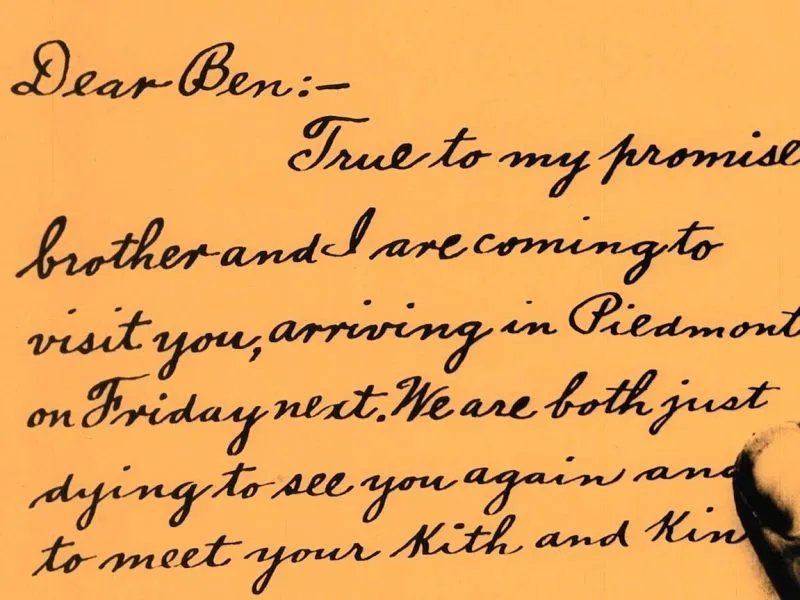 Dear Ben:—
True to my promise
brother and I are coming to
visit you, arriving in Piedmont
on Friday next. We are both just
dying to see you again and
to meet your Kith and Kin